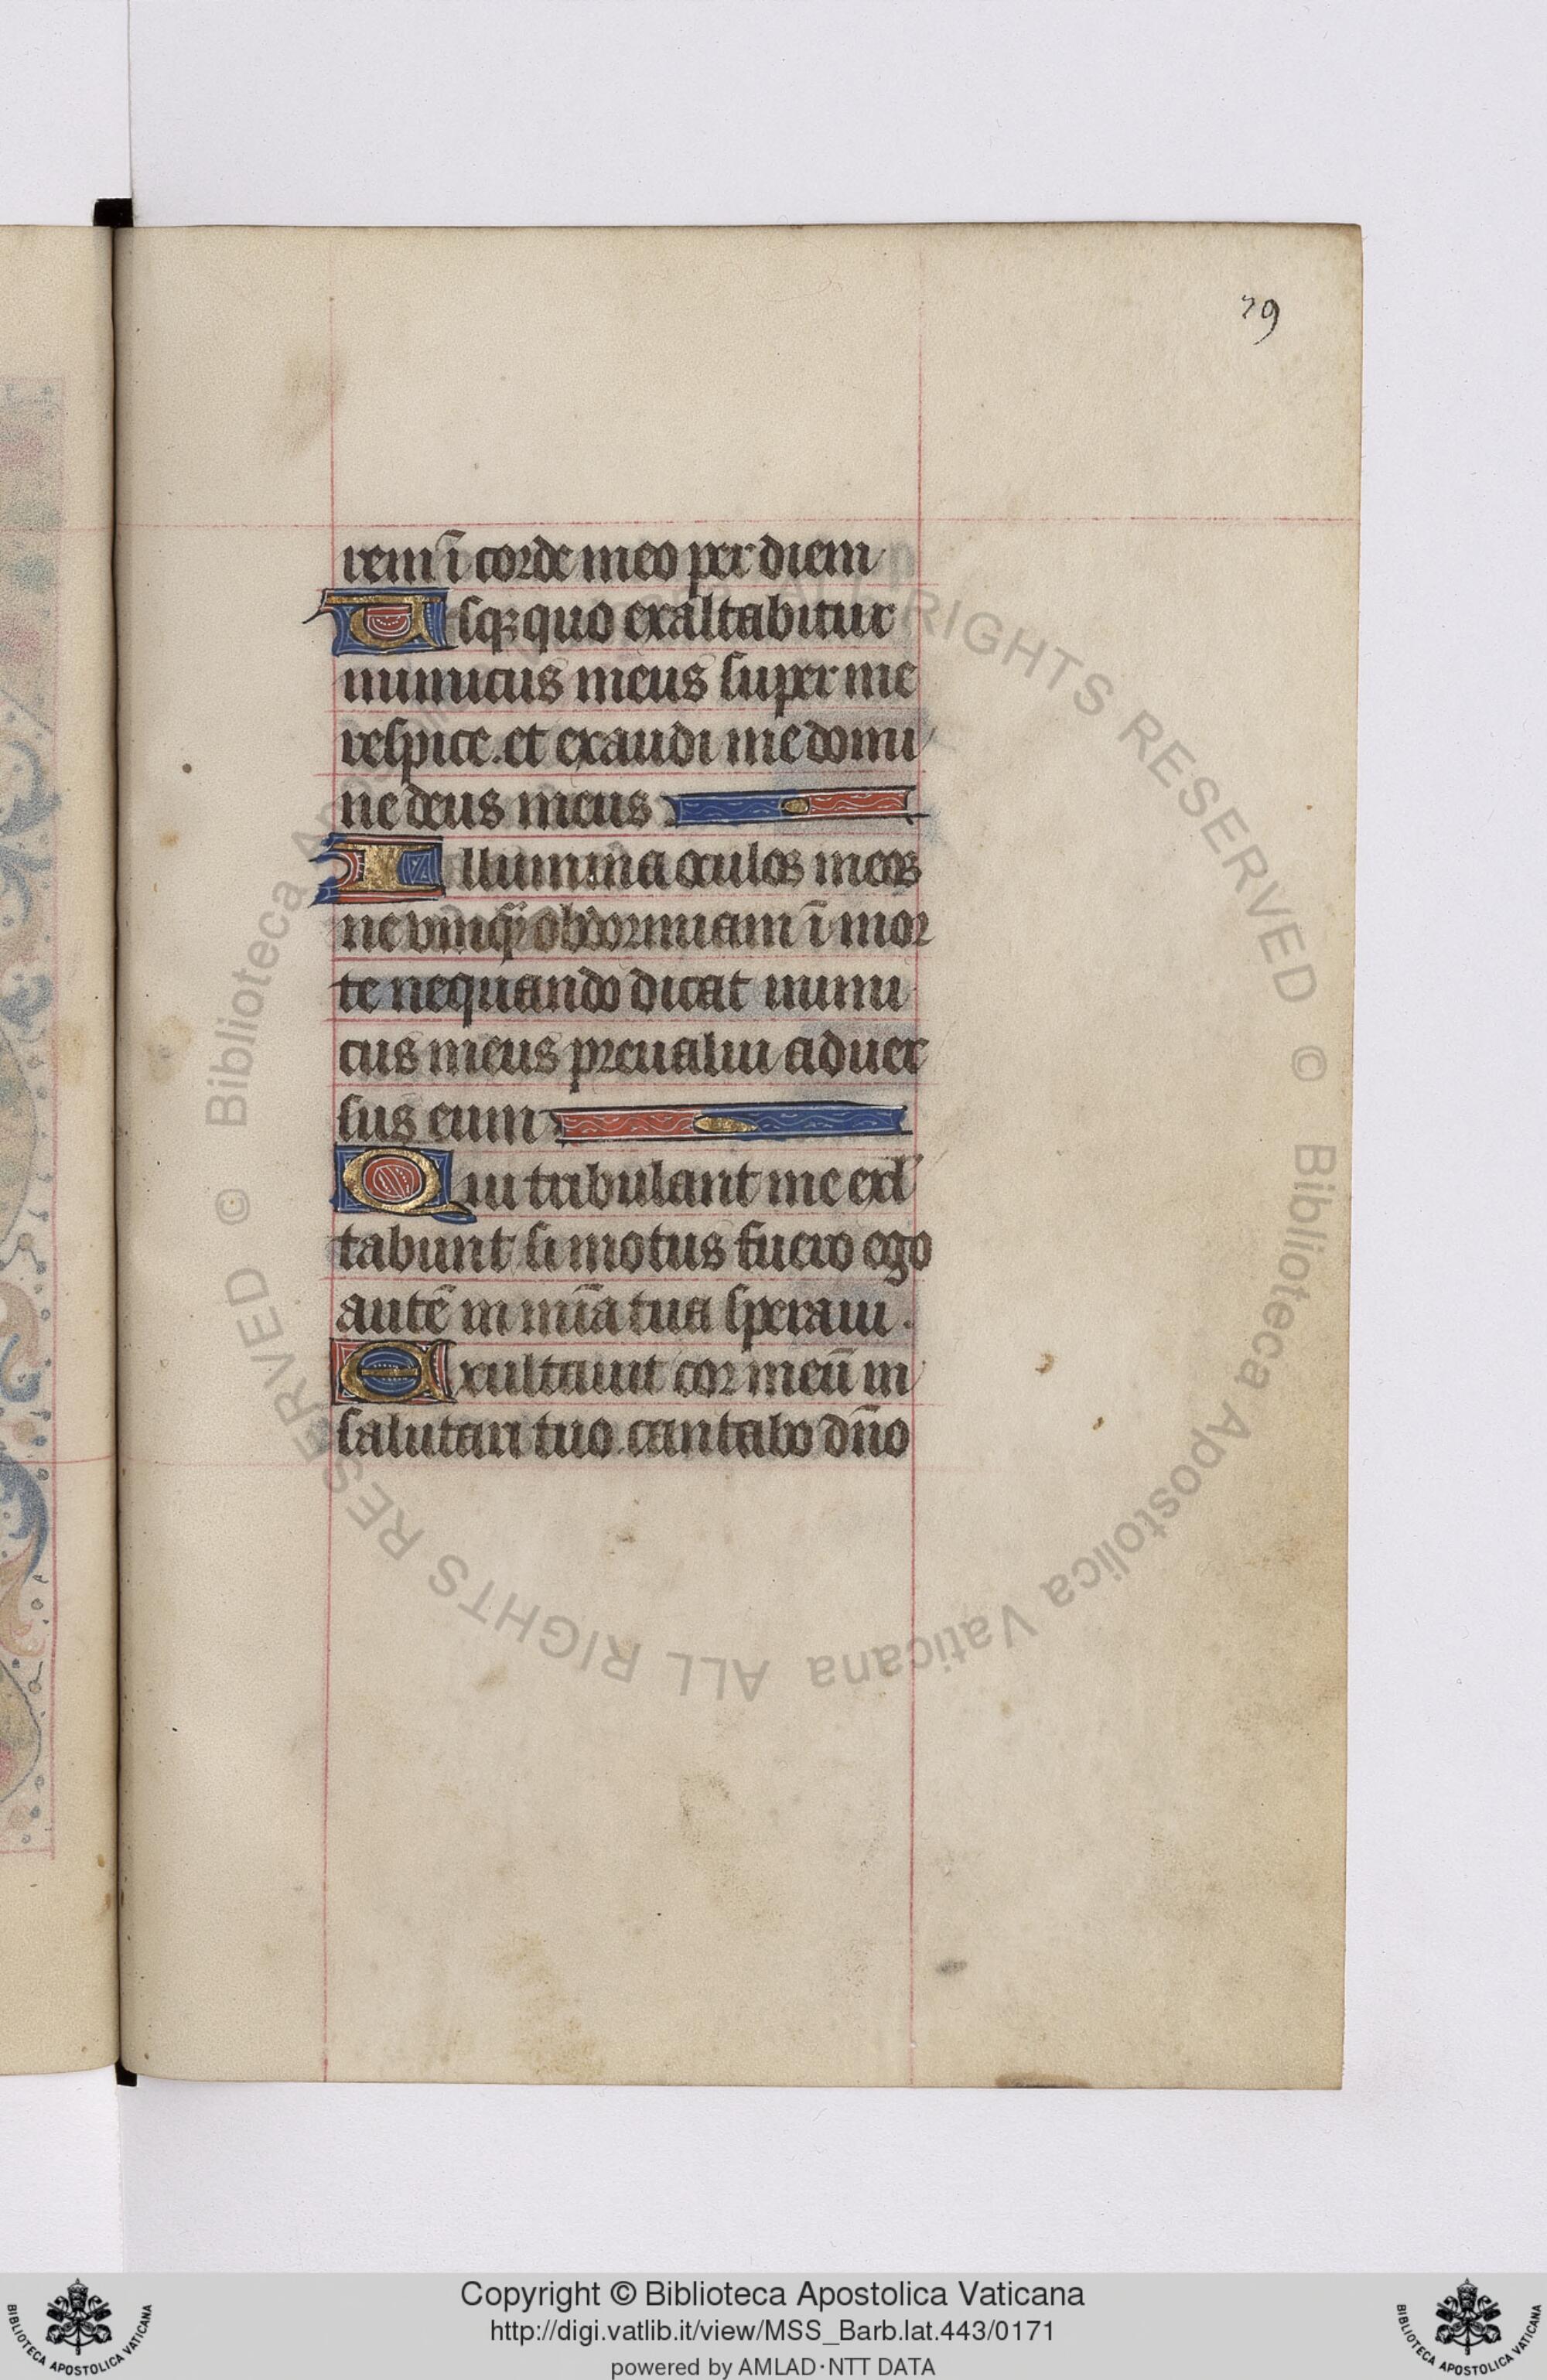 79
rem ī corde meo per diem
Usqꝫ quo exaltabitur
inimicus meus super me
respice. et exaudi me domi
ne deus meus
Illumina oculos meos
ne vnqͣ obdormiam ī mor
te nequando dicat inimi
cus meus preualui aduer
sus eum
Qui tribulant me exl
tabunt si motus fuero ego
autē in mīa tua speraui.
Exultauit cor meū in
salutari tuo. cantabo dn̄o
© Biblioteca Apostolica Vaticana ALL RIGHTS RESERVED © Biblioteca Apostolica Vaticana ALL RIGHTS RESERVED
Copyright © Biblioteca Apostolica Vaticana
http://digi.vatlib.it/view/MSS_Barb.lat.443/0171
powered by AMLAD·NTT DATA
BIBLIOTECA APOSTOLICA VATICANA
BIBLIOTECA APOSTOLICA VATICANA